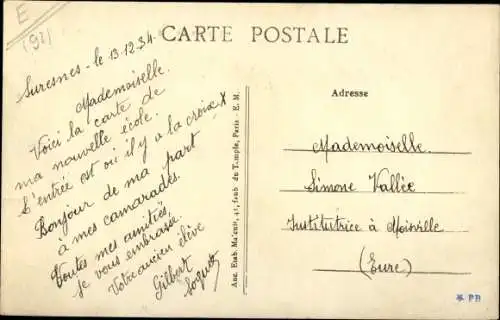 E
(92)
CARTE POSTALE
Suresnes - le 13.12.34
Mademoiselle.
Voici la carte de
ma nouvelle école.
L'entrée est où il y a la croix X
Bonjour de ma part
à mes camarades.
Toutes mes amitiés,
je vous embrasse.
Votre ancien élève
Gilbert
Anc. Etab. Malcuit, 41, faub. du Temple, Paris - E. M.
Adresse
Mademoiselle.
Simone Vallée
Institutrice à Moinville
(Eure)
PB